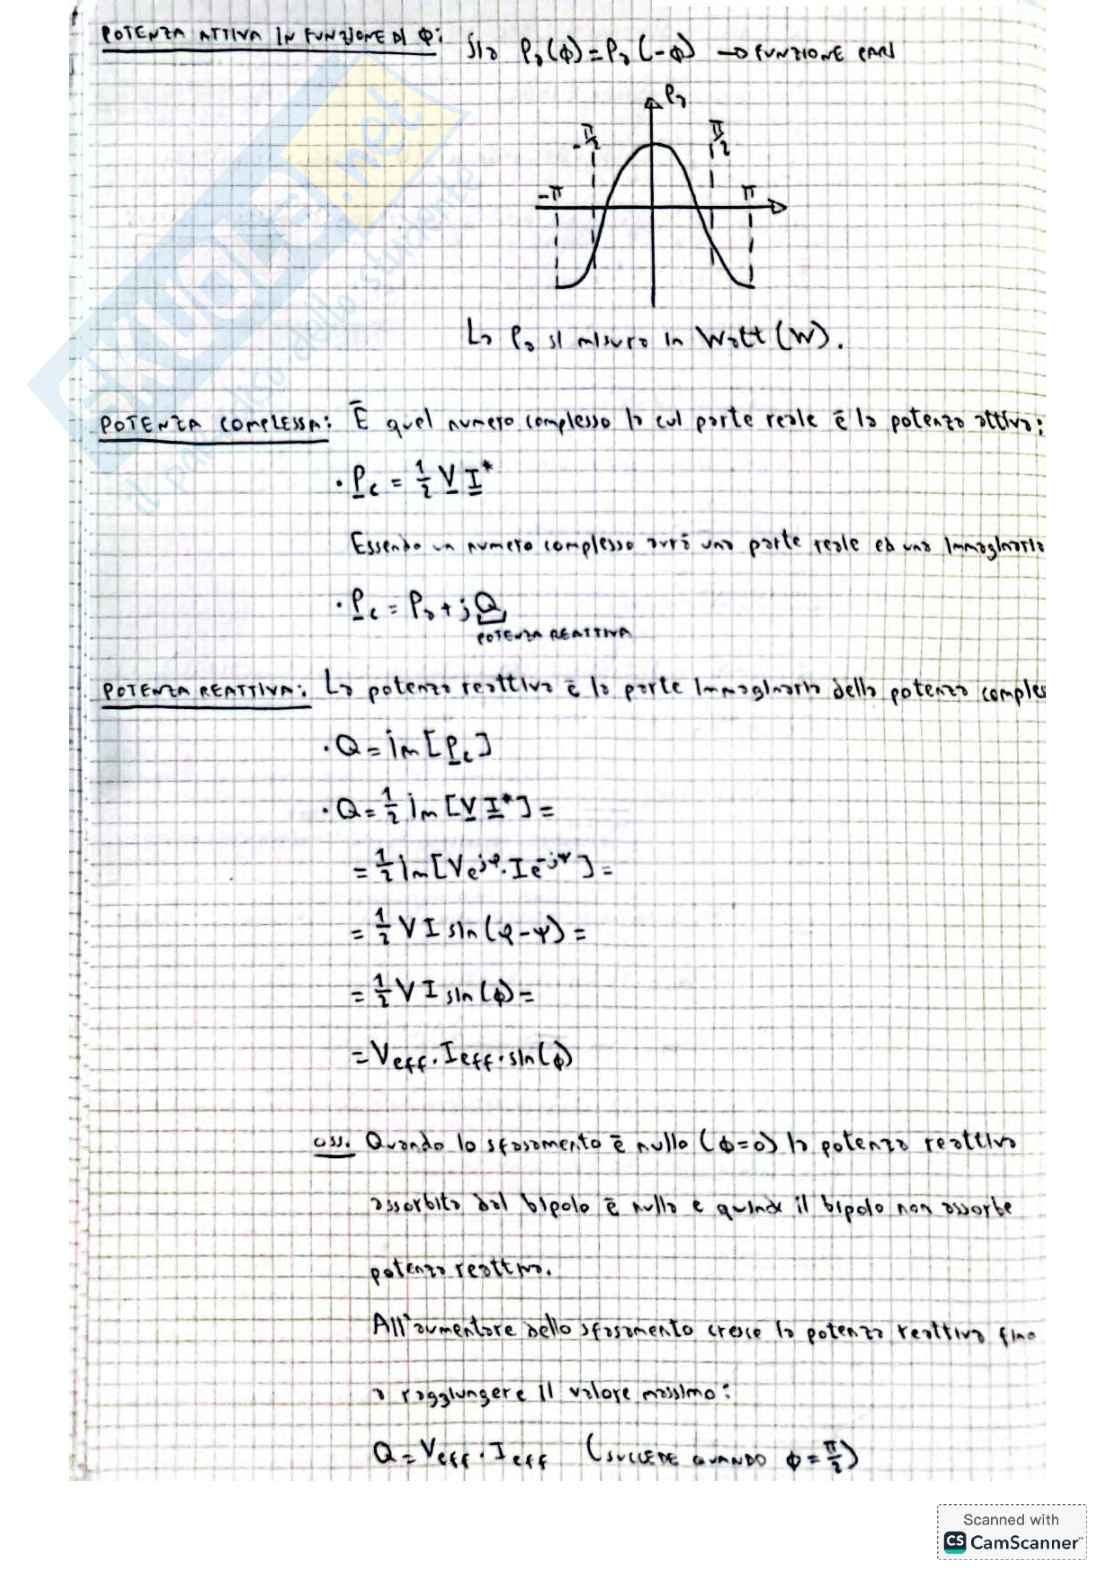 POTENZA ATTIVA IN FUNZIONE DI Φ: Sia Pa(ϕ)=Pa(-ϕ) → FUNZIONE PARI
Pa
-π/2
π/2
-π
π
La Pa si misura in Watt (W).
POTENZA COMPLESSA: È quel numero complesso la cui parte reale è la potenza attiva:
· Pc = 1/2 V I*
Essendo un numero complesso avrà una parte reale ed una immaginaria
· Pc = Pa + jQ
POTENZA REATTIVA
POTENZA REATTIVA: La potenza reattiva è la parte immaginaria della potenza comples
· Q = im [Pc]
· Q = 1/2 im [V I*] =
= 1/2 im [V e^jφ · I e^-jψ] =
= 1/2 V I sin (φ-ψ) =
= 1/2 V I sin (ϕ) =
= Veff · Ieff · sin(ϕ)
oss. Quando lo sfasamento è nullo (ϕ=0) la potenza reattiva
assorbita dal bipolo è nulla e quindi il bipolo non assorbe
potenza reattiva.
All'aumentare dello sfasamento cresce la potenza reattiva fino
a raggiungere il valore massimo:
Q = Veff · Ieff (SUCCEDE QUANDO ϕ = π/2)
SKUOLA.net
il paradiso dello studente
Scanned with
CS CamScanner